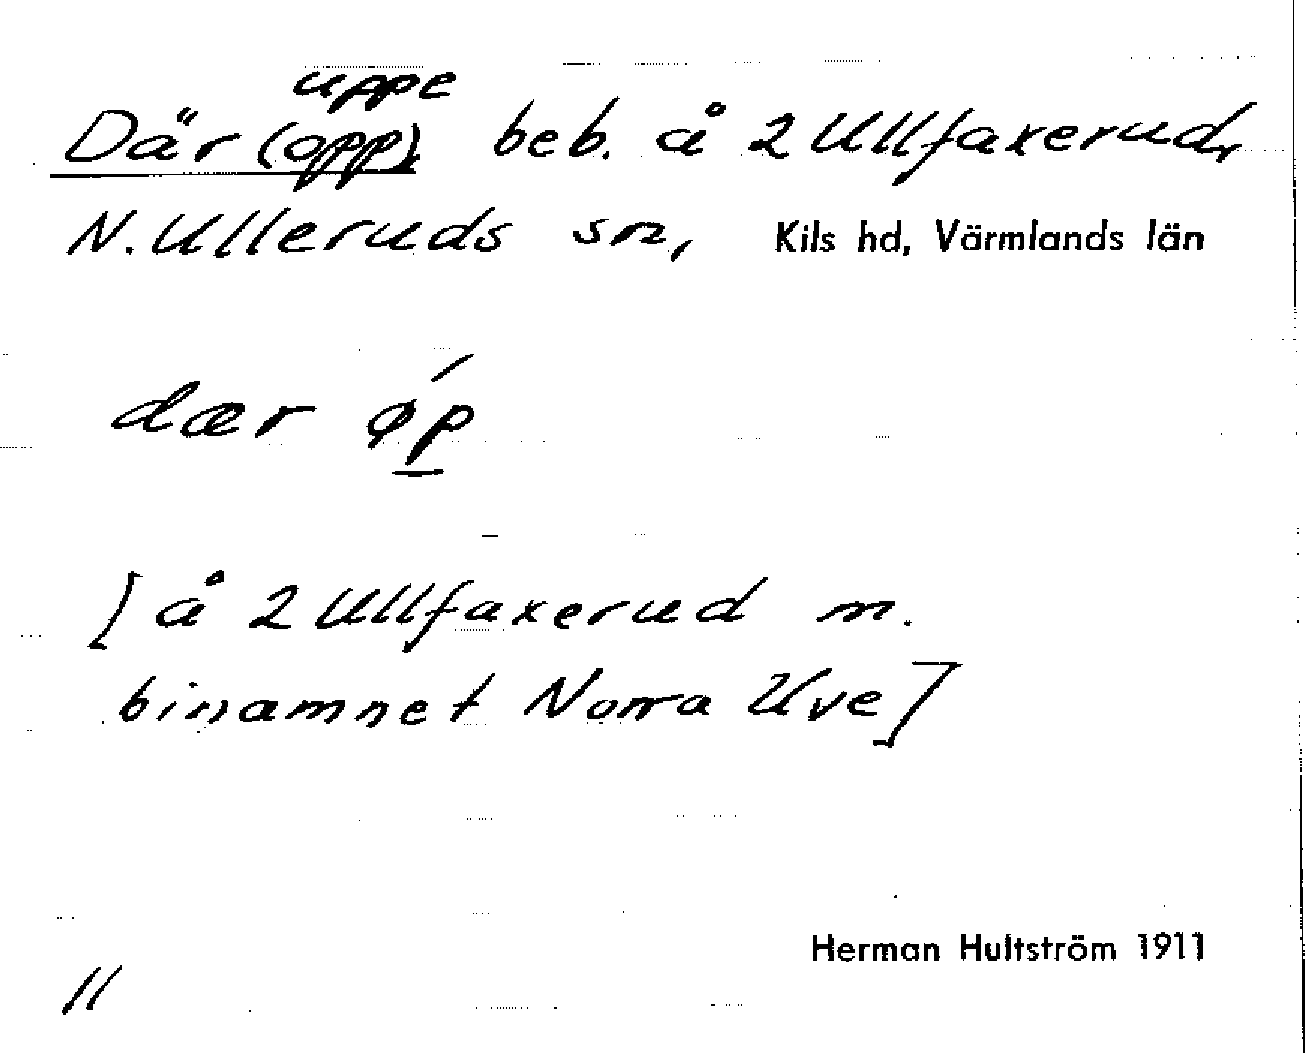 uppe
Där (opp), beb. å 2 Ullfaxerud,
N. Ulleruds sn, Kils hd, Värmlands län
dær øp
[å 2 Ullfaxerud m.
binamnet Norra Uve]
Herman Hultström 1911
11